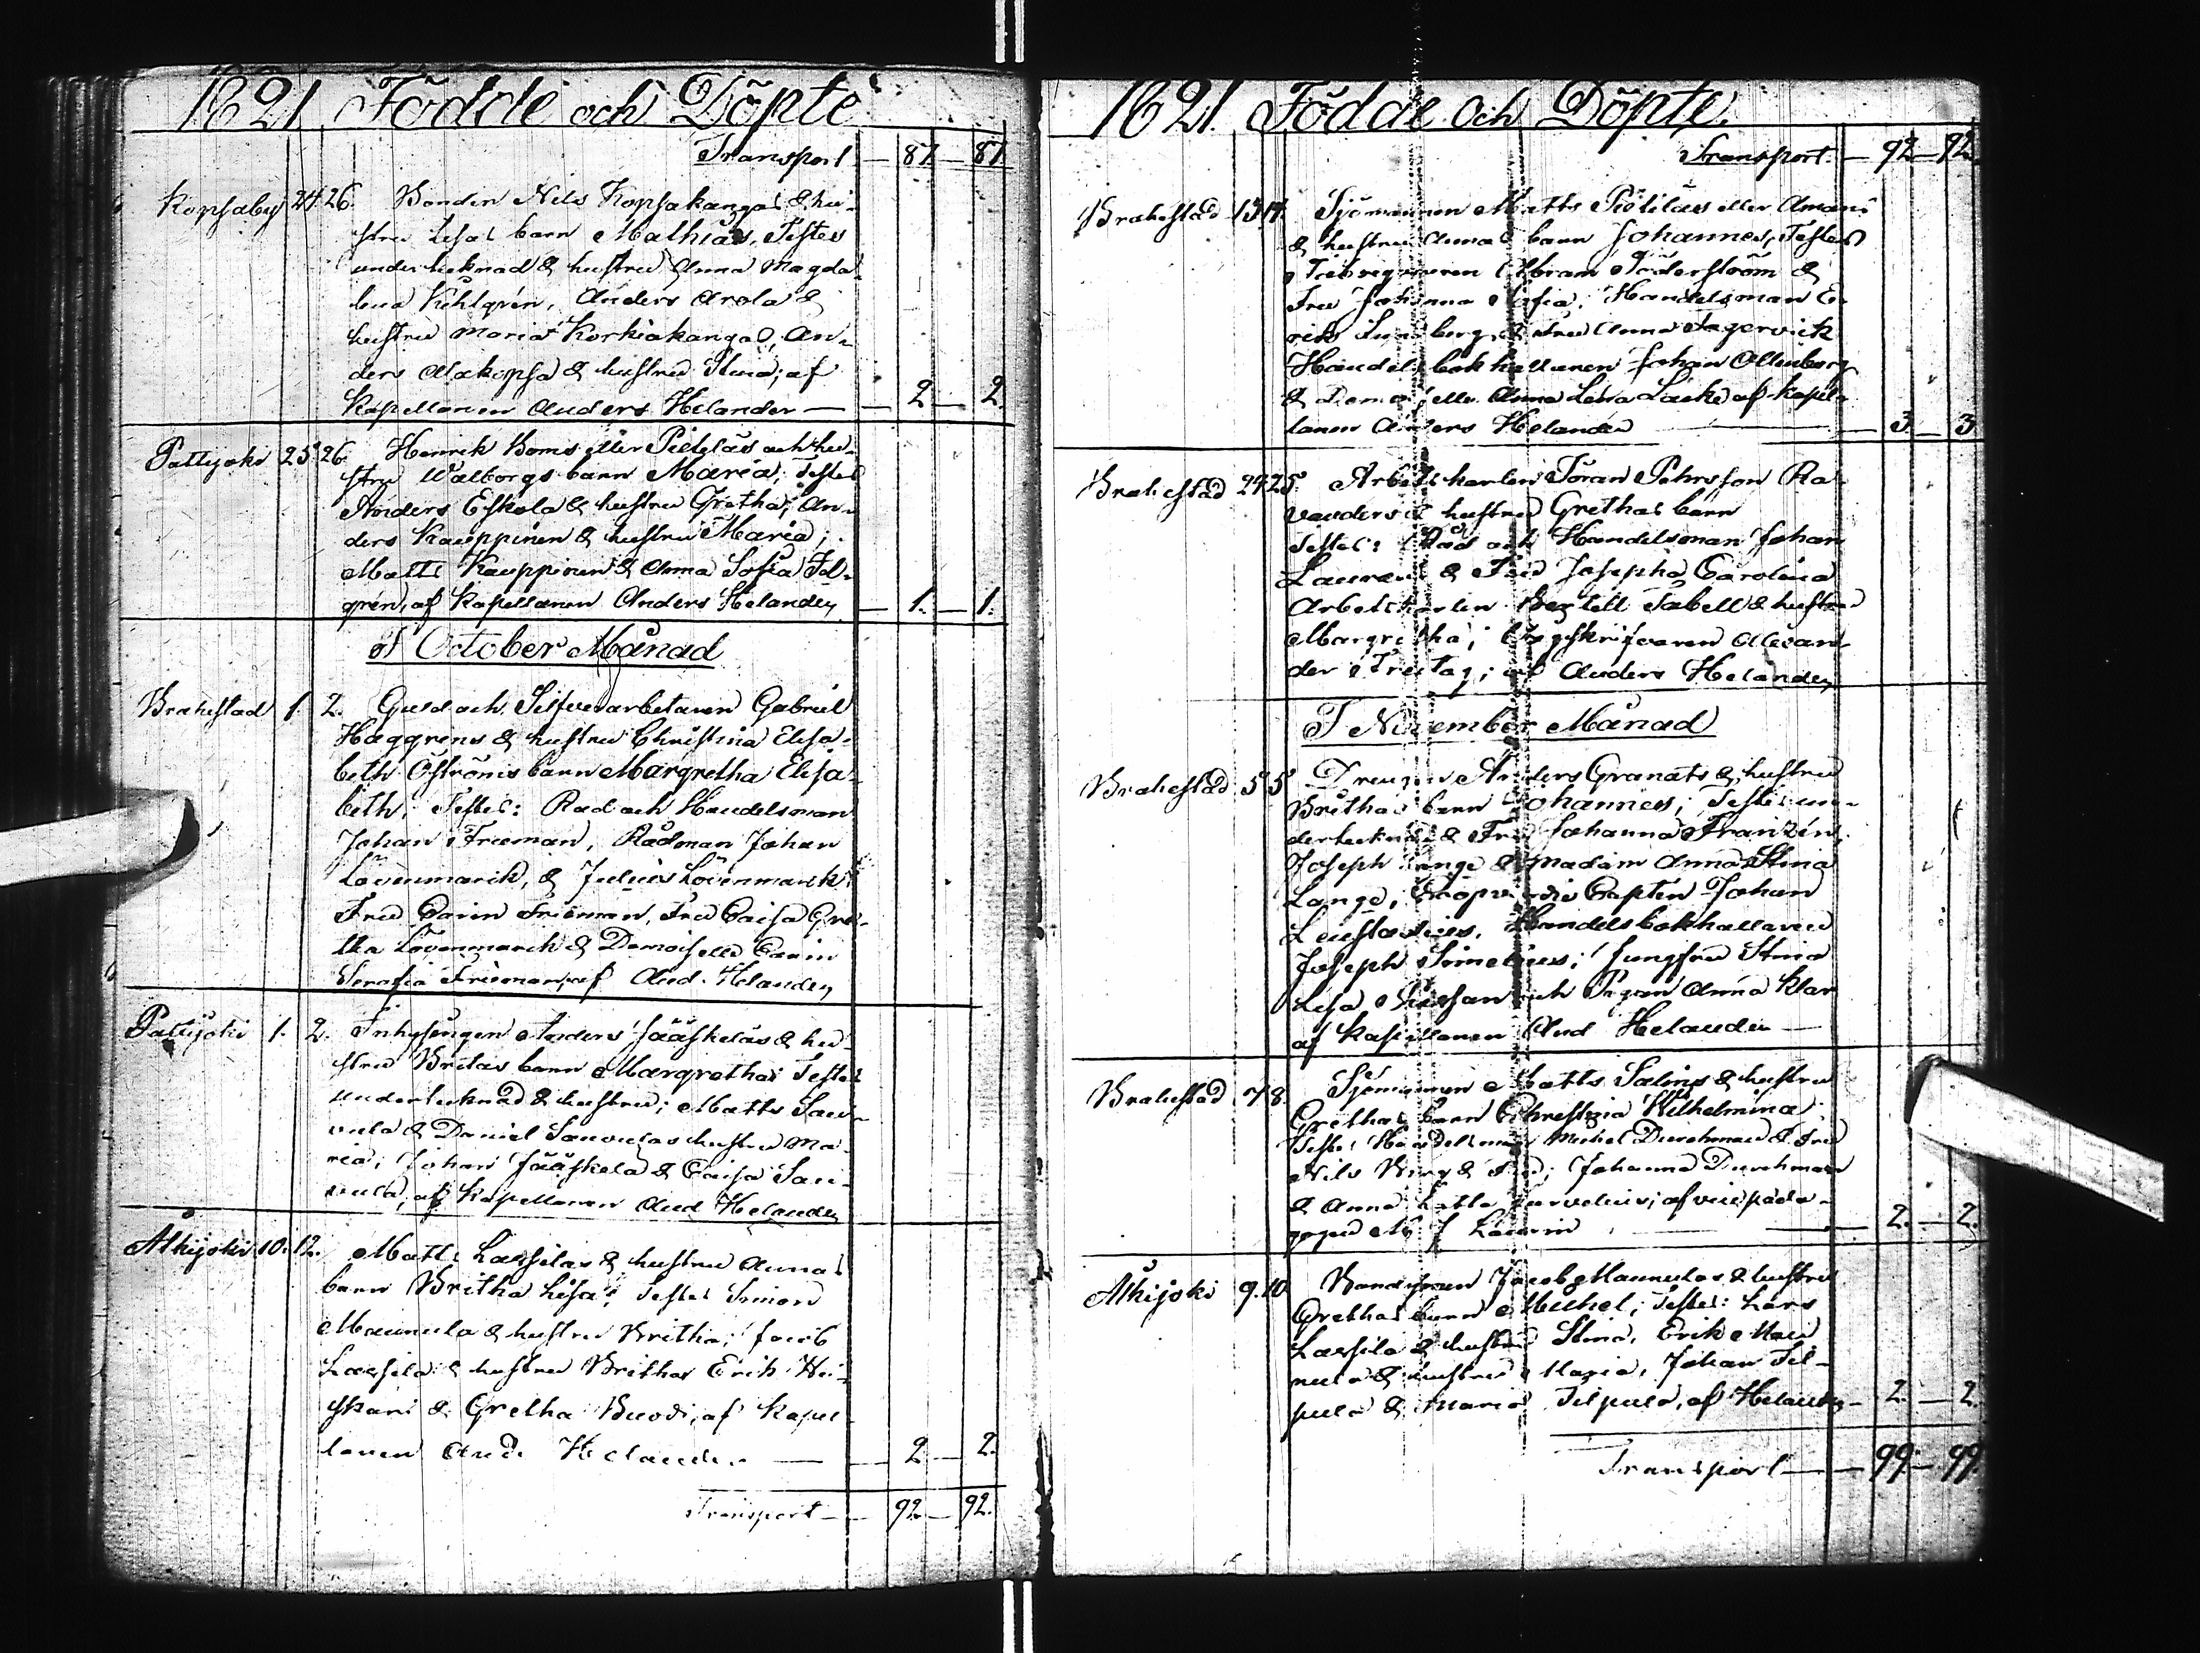 1821 Födde och Döpte
Transport — 87 — 87
Kopsaby 24 26. Bonden Nils Kopsakangas & hu-
stru Lisas barn Mathias, Testes
undertecknad & hustru Anna Magda-
lena Kihlgrén, Anders Arola &
hustru Maria Korkiakangas, An-
ders Alakopsa & hustru Stina; af
Kapellanen Anders Helander — 2 — 2.
Pattijoki 25 26. Henrik Boms eller Pietiläs och hu-
stru Walborgs barn Maria; Testes
Anders Eskola & hustru Gretha; An-
ders Kauppinen & hustru Maria;
Matts Kauppinen & Anna Sofia
grén, af Kapellanen Anders Helander — 1. — 1.
I October Månad
Brahestad 1. 2. Guld och Silfverarbetaren Gabriel
Häggrens & hustru Christina Elisa-
beth Öströms barn Margretha Elisa-
beth; Testes: Råd och Handelsman
Johan Frieman, Rådman Johan
Lövenmarck, & Julius Lövenmarck
Fru Carin Frieman, Fru Caisa Gre-
tha Lövenmarck & Demoiselle Carin
Serafia Frieman, af And. Helander
Pattijoki 1. 2. Inhysingen Anders Jääskeläs & hu-
stru Britas barn Margretha; Testes
undertecknad & hustru; Matts Sau-
vula & Daniel Sauvulas hustru Ma-
ria; Johan Jääskelä & Caisa Sau-
vula, af Kapellanen And Helander
Alhijoki 10. 12. Matts Lassilas & hustru Annas
barn Britha Lisa; Testes Simon
Maunula & hustru Britha; Jacob
Lassila & hustru Britha; Erik Hei-
skari & Gretha Buodi, af Kapel-
lanen And. Helander — 2 — 2.
Transport — 92 — 92.
1821. Födde och Döpte.
Transport. — 92 — 92.
Brahestad 13 14. Sjömannen Matts Pietiläs eller Amans
& hustru Annas barn Johannes, Testes
Abram Söderström &
Fru Johanna Sofia, Handelsman E-
rik Sundberg & Fru Anna Fagervick
Handelsbokhallaren Johan Ollenberg
& Demoiselle Anna Lena Lacke af Kapel-
lanen Anders Helander — 3. — 3
Brahestad 24 25. Arbetskarlen Göran Pehrsson Ra-
vanders & hustru Grethas barn
Testes: Råd och Handelsman Johan
& Fru Josepha Carolina
Arbetskarlen Bertell Sabell & hustru
Margretha; Alexan-
der Freitag; af Anders Helander
I November Månad
Brahestad 5 5 Drengen Anders Granats & hustru
Brithas barn Johannes; Testes un-
dertecknad & Fru Johanna Franzén,
Joseph Lange & Madam Anna Stina
Lange; Coopvardie Capten Johan
Leustadius, Handelsbokhallaren
Joseph Simelius; Jungfru Stina
Lisa och Pigan Anna Klar
af Kapellanen And Helander —
Brahestad 7 8. Sjömannen Matts Salins & hustru
Grethas barn Christina Wilhelmina
Testes Handelsman Michel Durchman & Fru
Nils Berg & Fru; Johanna Durchman
& Anna Lotta af vice päda-
gogen M. J. Laurin — 2. — 2.
Alhijoki 9. 10 Bondeman Jacob Maunulas & hustru
Grethas barn Michel; Testes: Lars
Lassila & hustru Stina, Erik Mau-
nula & hustru Maria, Johan Til-
pula & Maria Tilpula, af Helander — 2. — 2.
Transport — 99 — 99.